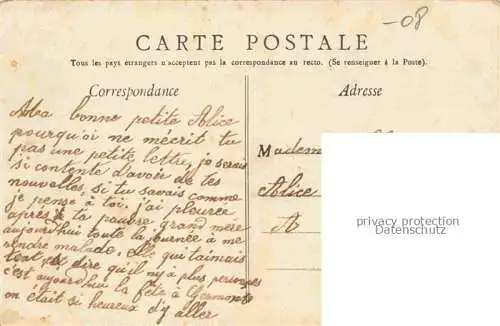 -08
CARTE POSTALE
Tous les pays étrangers n'acceptent pas la correspondance au recto. (Se renseigner à la Poste).
Correspondance
Adresse
Ma bonne petite Alice
pourquoi ne mécrit tu
pas une petite lettre, je serais
si contente d'avoir de tes
nouvelles, si tu savais comme
je pense à toi, j'ai pleurée
après ta pauvre grand mère
aujourd'hui toute la journée à me
rendre malade. elle qui t'aimais
tant dire qu'il n'y à plus personne
c'est aujourd'hui la fête à
on était si heureux d'y aller
Madem
Alice
A
privacy protection
Datenschutz